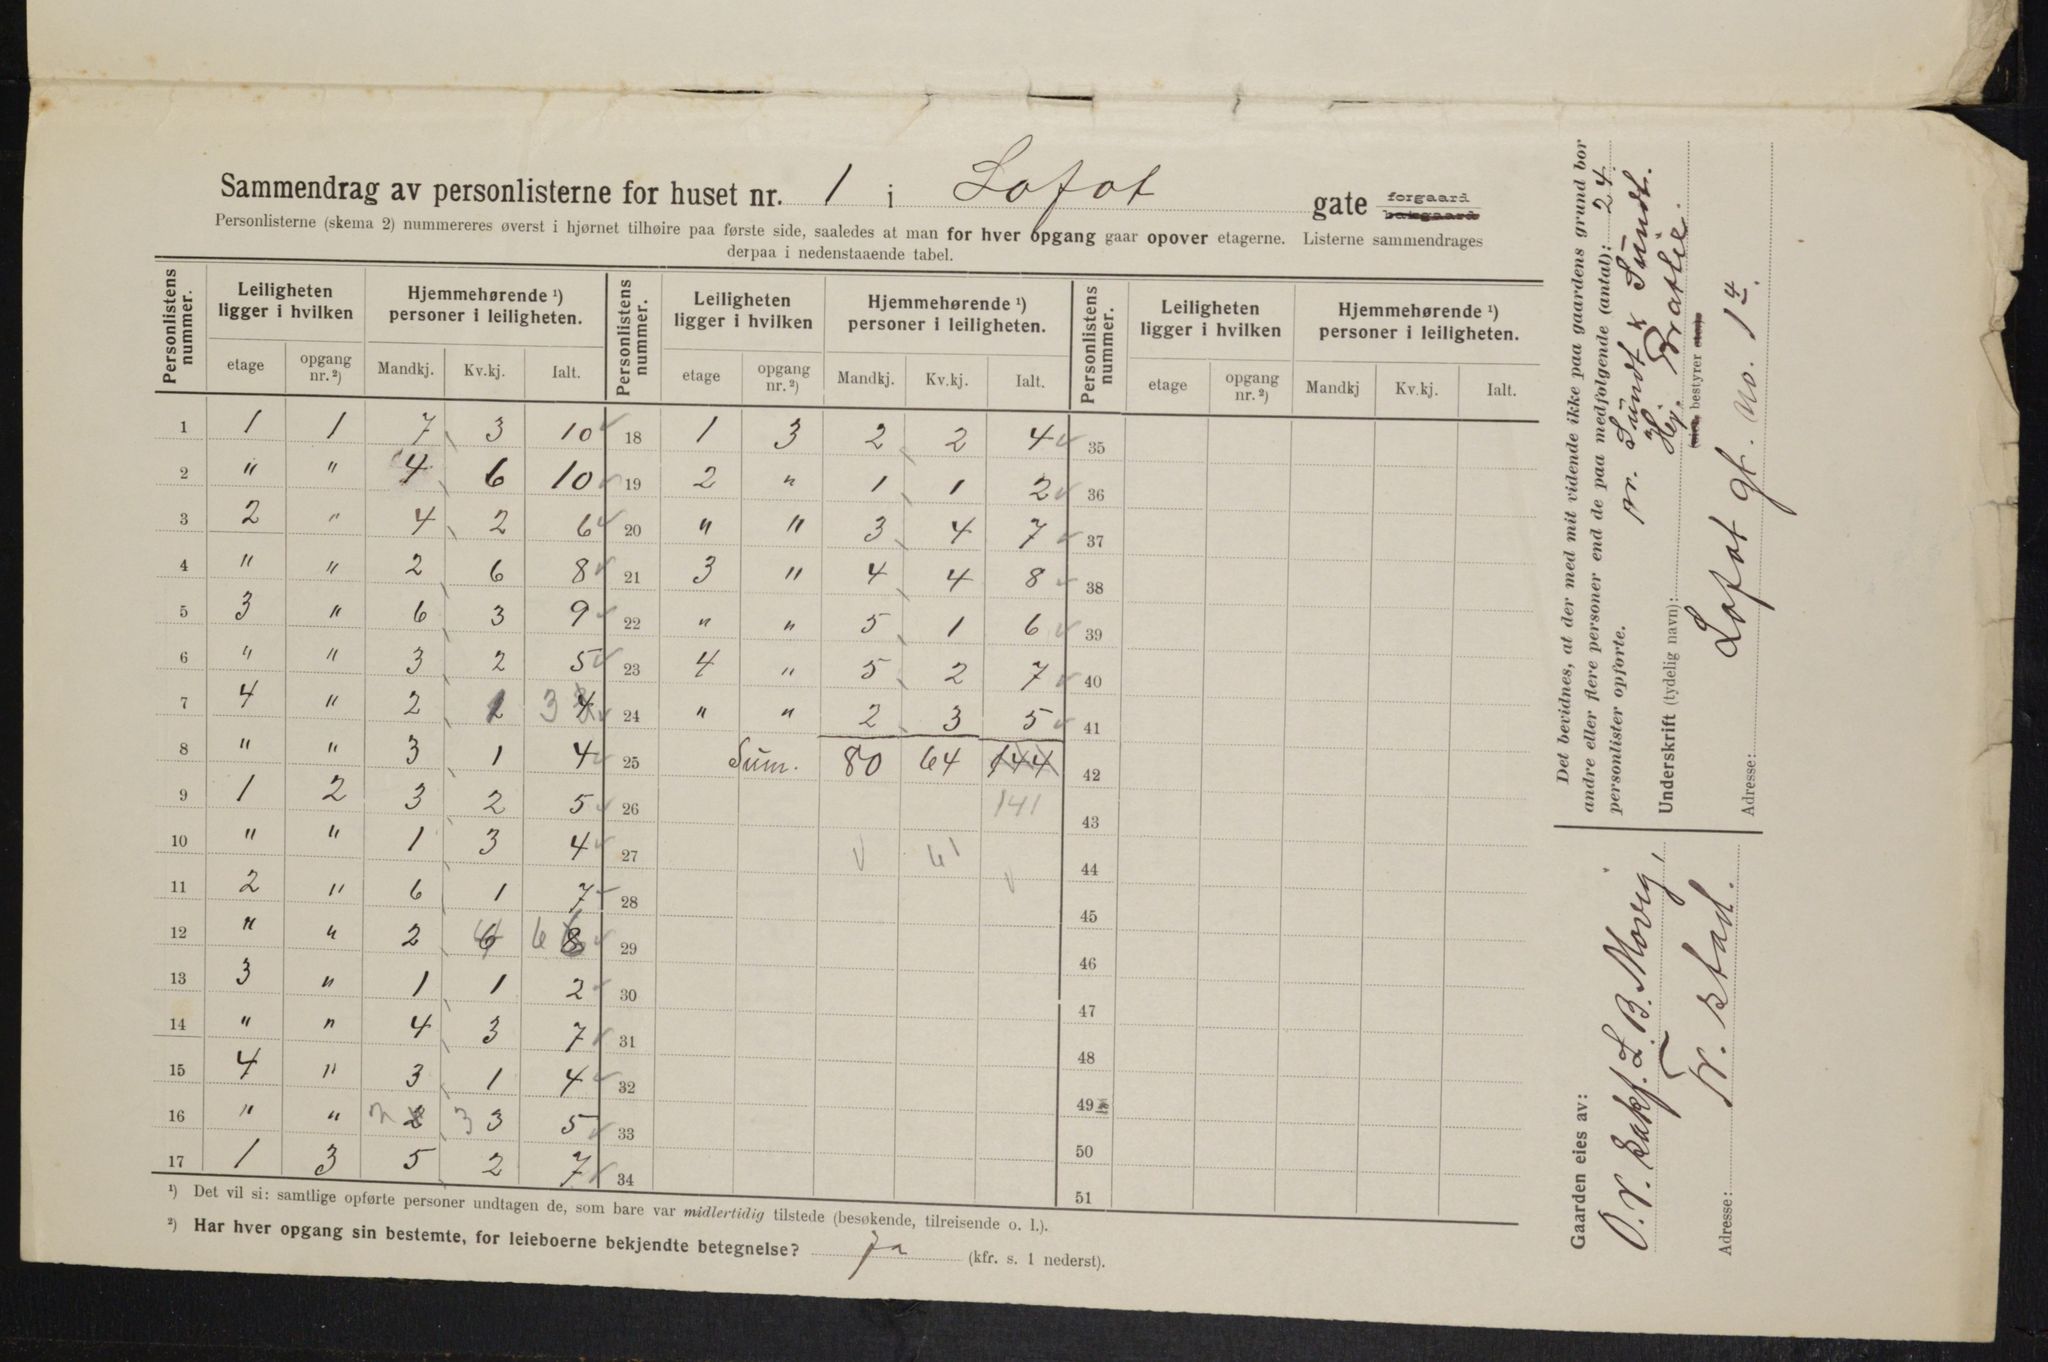 Sammendrag av personlisterne for huset nr. 1 i Lofot gate forgaard bakgaard
Personlisterne (skema 2) nummereres øverst i hjørnet tilhøire paa første side, saaledes at man for hver opgang gaar opover etagerne. Listerne sammendrages
derpaa i nedenstaaende tabel.
Personlistens nummer. Leiligheten ligger i hvilken Hjemmehørende ¹) personer i leiligheten. Personlistens nummer. Leiligheten ligger i hvilken Hjemmehørende ¹) personer i leiligheten. Personlistens nummer. Leiligheten ligger i hvilken Hjemmehørende ¹) personer i leiligheten.
etage opgang nr. ²) Mandkj. Kv.kj. Ialt. etage opgang nr. ²) Mandkj. Kv.kj. Ialt. etage opgang nr. ²) Mandkj Kv.kj. Ialt.
1 1 1 7 3 10 18 1 3 2 2 4 35
2 " " 4 6 10 19 2 " 1 1 2 36
3 2 " 4 2 6 20 " " 3 4 7 37
4 " " 2 6 8 21 3 " 4 4 8 38
5 3 " 6 3 9 22 " " 5 1 6 39
6 " " 3 2 5 23 4 " 5 2 7 40
7 4 " 2 1 3 4 24 " " 2 3 5 41
8 " " 3 1 4 25 Sum. 80 64 144 42
9 1 2 3 2 5 26 141 43
10 " " 1 3 4 27 61 44
11 2 " 6 1 7 28 45
12 " " 2 6 6 8 29 46
13 3 " 1 1 2 30 47
14 " " 4 3 7 31 48
15 4 " 3 1 4 32 49
16 " " 2 2 3 3 5 33 50
17 1 3 5 2 7 34 51
¹) Det vil si: samtlige opførte personer undtagen de, som bare var midlertidig tilstede (besøkende, tilreisende o. l.).
²) Har hver opgang sin bestemte, for leieboerne bekjendte betegnelse? Ja (kfr. s. 1 nederst).
Det bevidnes, at der med mit vidende ikke paa gaardens grund bor
andre eller flere personer end de paa medfølgende (antal): 24
personlister opførte.
pr. Sundt & Sundt.
Underskrift (tydelig navn): Hej. Bratlie.
(eier, bestyrer etc.)
Lofot gt. No. 1 4.
Adresse:
Gaarden eies av:
O.r. sakf. L. B. Morig,
Adresse: N. stad.